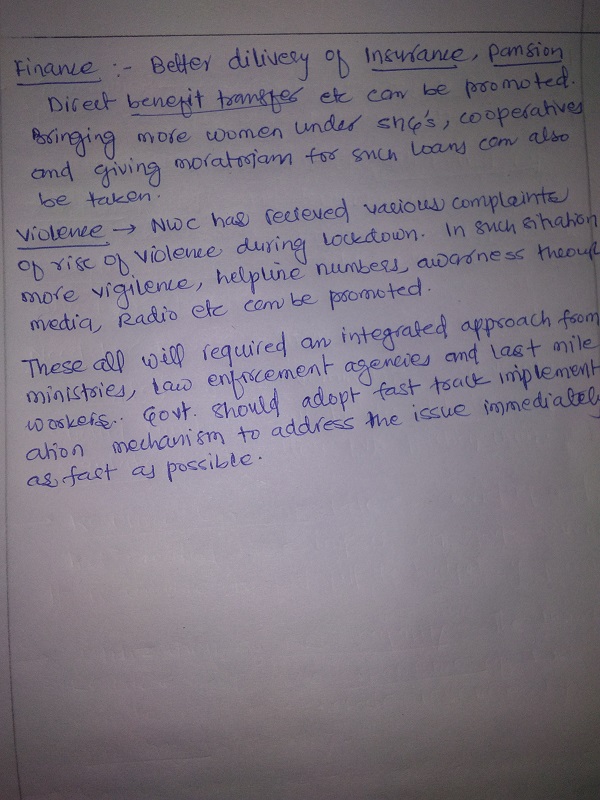 Finance :- Better dilivery of Insurance, Pansion
Direct benefit transfer etc can be promoted.
Bringing more women under SHG's, cooperatives
and giving moratorjam for such loans can also
be taken.
Violence → NWC has recieved various complaints
of rise of violence during lockdown. In such sitnation
more vigilence, helpline numbers, awarness though
media, Radio etc can be promoted.
These all will required an integrated approach from
ministries, Law enforcement agencies and last mile
workers. Govt. should adopt fast track implement
ation mechanism to address the issue immediately
as fast as possible.